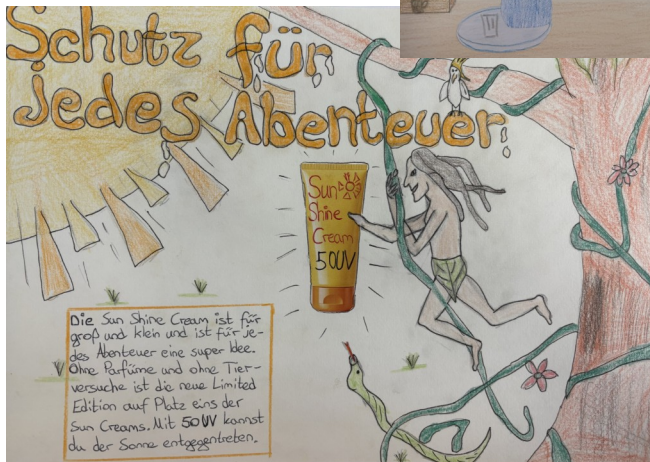 Schutz für
jedes Abenteuer
Sun
Shine
Cream
50UV
Die Sun Shine Cream ist für
groß und klein und ist für je-
des Abenteuer eine super Idee.
Ohne Parfüme und ohne Tier-
versuche ist die neue Limited
Edition auf Platz eins der
Sun Creams. Mit 50UV kannst
du der Sonne entgegentreten.